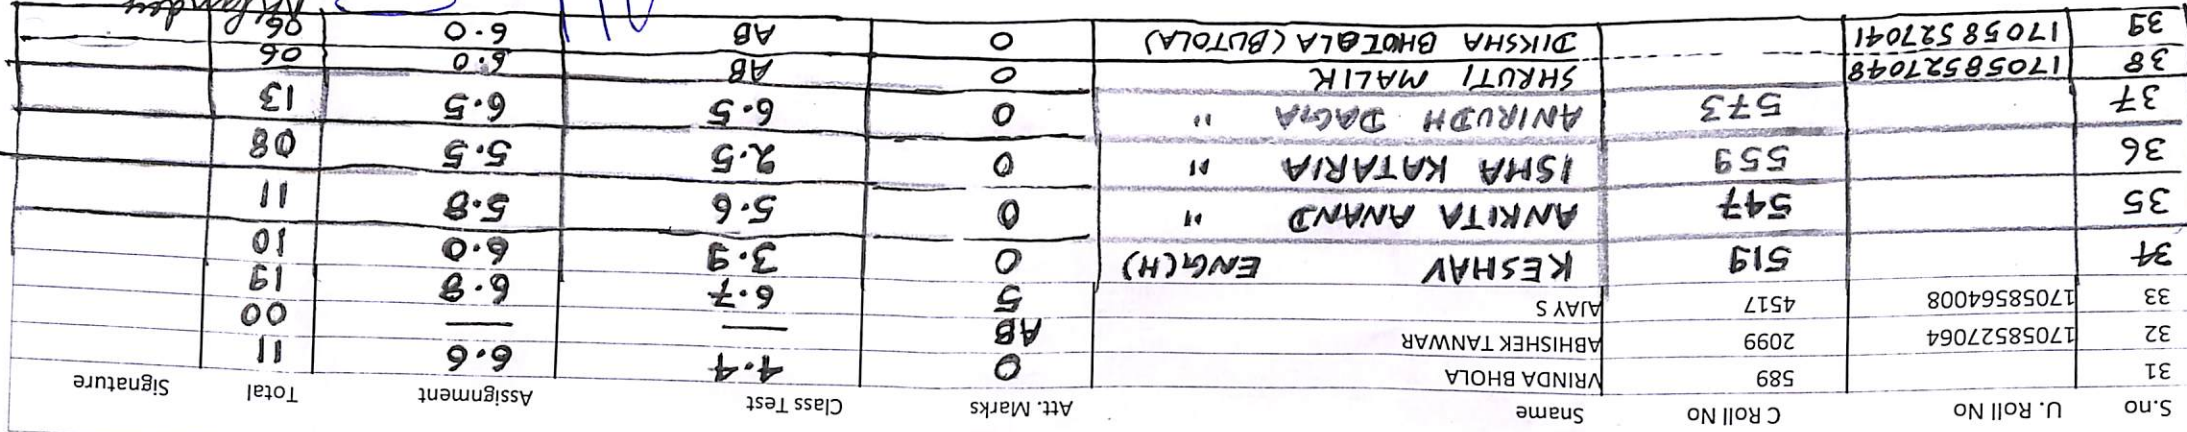 S.no U. Roll No C Roll No Sname Att. Marks Class Test Assignment Total Signature
31 589 VRINDA BHOLA 0 4.4 6.6 11
32 17058527064 2099 ABHISHEK TANWAR AB — — 00
33 17058564008 4517 AJAY S 5 6.7 6.8 19
34 519 KESHAV ENG(H) 0 3.9 6.0 10
35 547 ANKITA ANAND " 0 5.6 5.8 11
36 559 ISHA KATARIA " 0 2.5 5.5 08
37 573 ANIRUDH DAGA " 0 6.5 6.5 13
38 17058527048 SHRUTI MALIK 0 AB 6.0 06
39 17058527041 DIKSHA BHOLA (BUTOLA) 0 AB 6.0 06